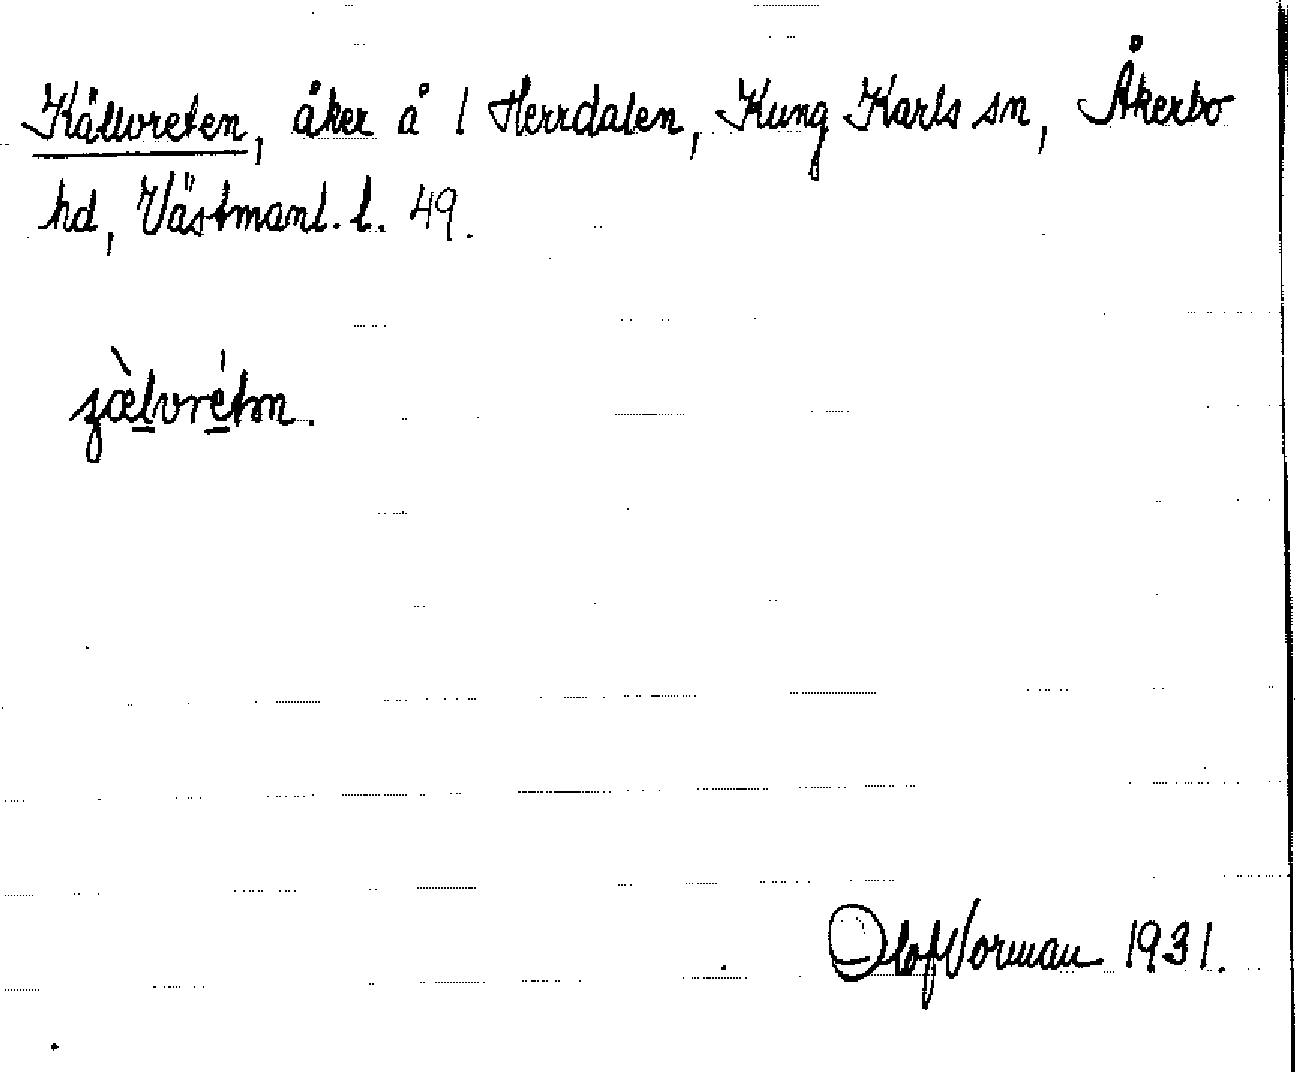 Källvreten, åker å 1 Herrdalen, Kung Karls sn, Åkerbo
hd, Västmanl. l. 49.
Olof Norman 1931.